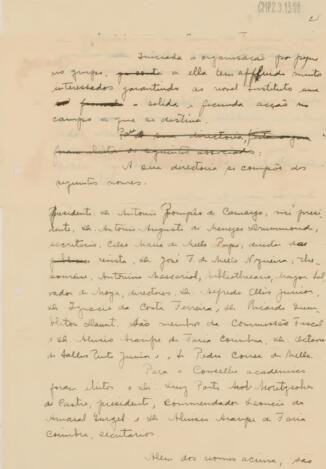 CMP2.3.13.91
2
Iniciada a organisação por peque
no grupo, a ella tem affluido muito
interessados garantindo ao novel instituto uma
solida e fecunda acção no
campo a que se destina.
A sua directoria se compõe dos
seguintes nomes.
Presidente, dr. Antonio Pompêo de Camargo, vice presi
dente, dr. Antonio Augusto de Menezes Drummond,
secretario, Celso Maria de Mello Pupo, director da
revista, dr. José T. de Mello Nogueira, the
soureiro, Antonino Massarioli, bibliothecario, major Sal
vador de Moya, directores, dr. Alfredo Ellis Junior,
dr. Ignacio da Costa Ferreira, dr. Ricardo Gum
bleton Daunt. São membros da Commissão Fiscal
dr. Aluisio Araripe de Faria Coimbra, dr. Octavio
de Salles Pinto Junior, e dr. Pedro Correa de Mello.
Para o Conselho academico
foram eleitos o dr. Luiz Porto Moretzsohn
de Castro, presidente, Commendador Leoncio do
Amaral Gurgel e dr. Aluisio Araripe de Faria
Coimbra, secretarios.
Além dos nomes acima, sao